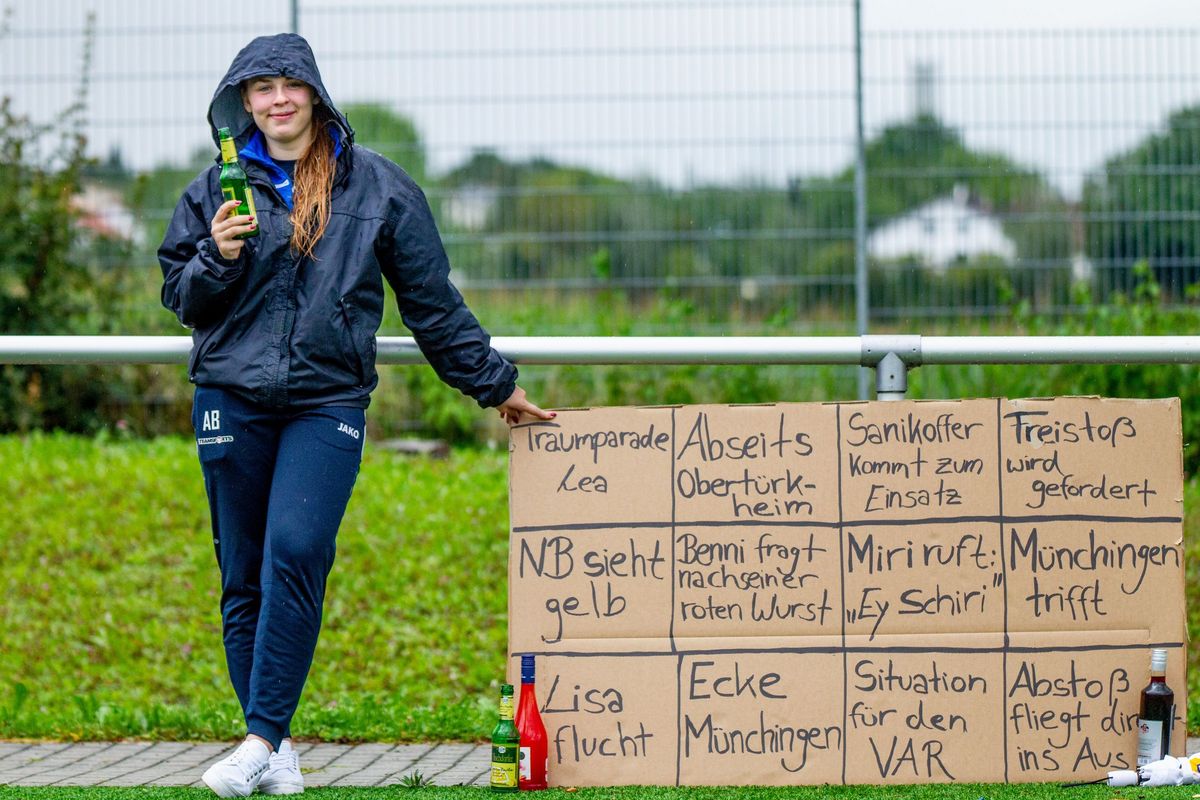 AB
TEAMSPORTS
JAKO
Traumparade
Lea
Abseits
Obertürk-
heim
Sanikoffer
kommt zum
Einsatz
Freistoß
wird
gefordert
NB sieht
gelb
Benni fragt
nach seiner
roten Wurst
Miri ruft:
„Ey Schiri"
Münchingen
trifft
Lisa
flucht
Ecke
Münchingen
Situation
für den
VAR
Abstoß
fliegt dir
ins Aus